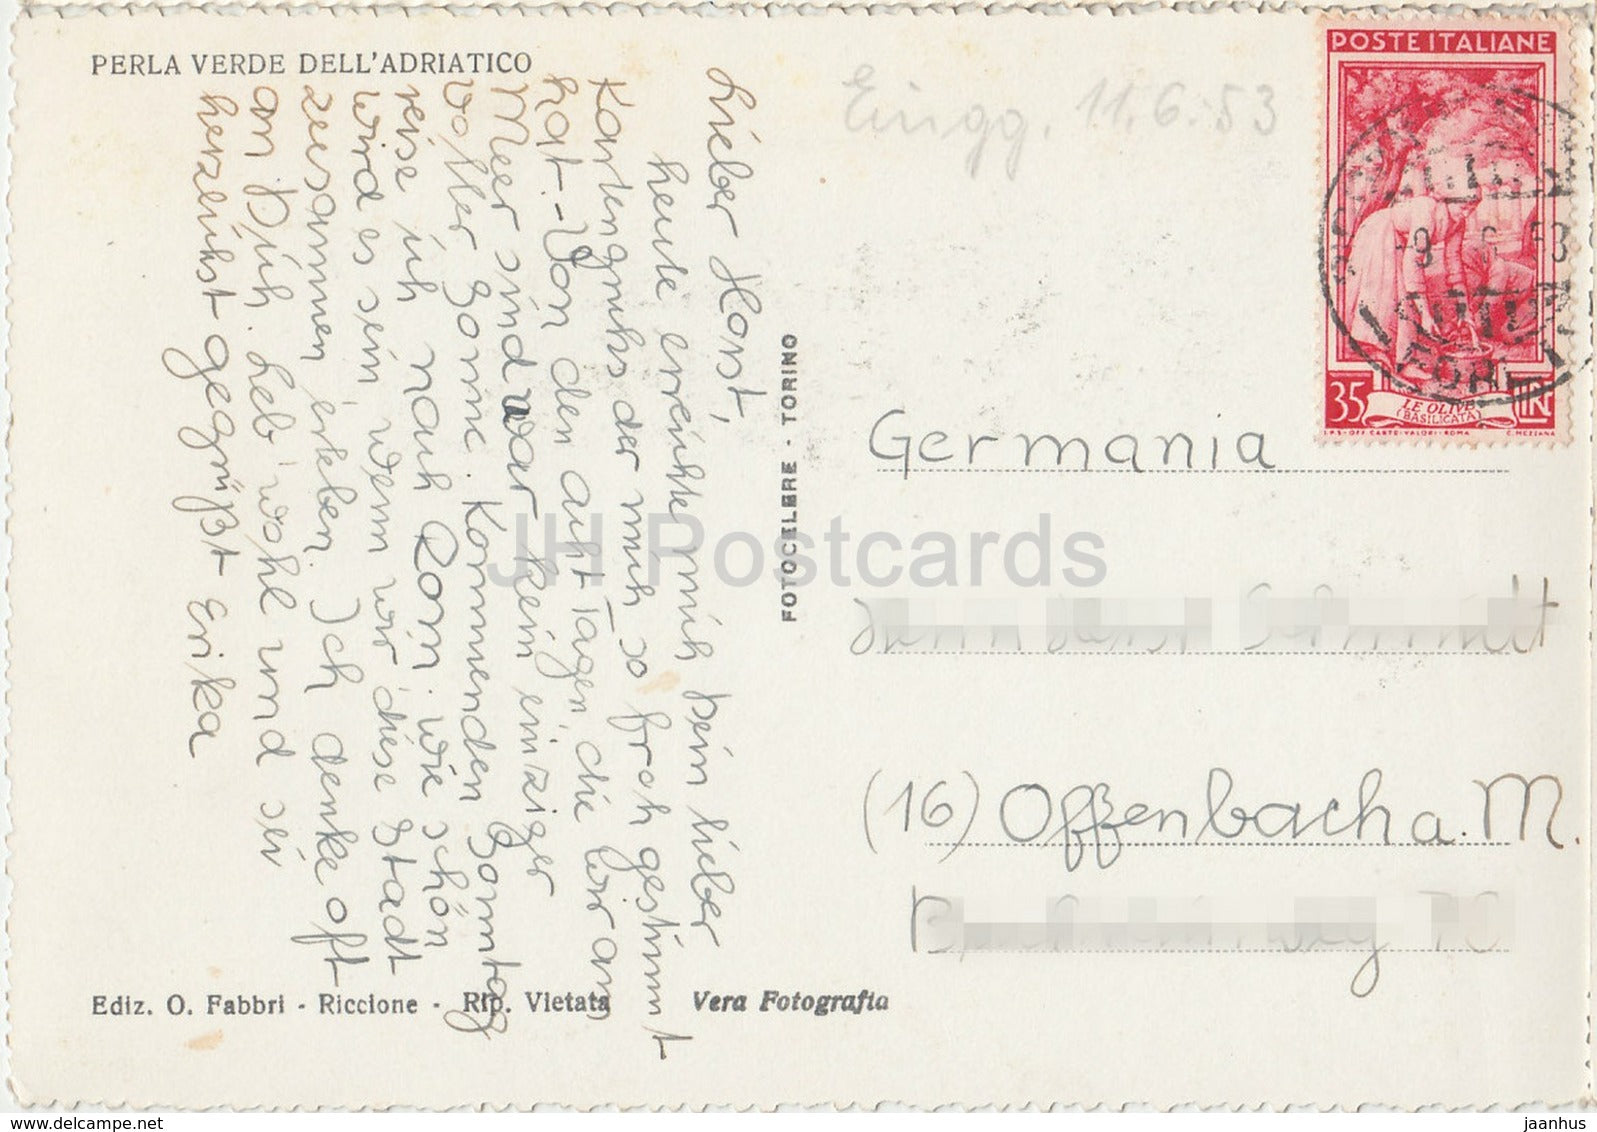 PERLA VERDE DELL'ADRIATICO
Lieber Horst,
heute erreichte mich Dein lieber
Kartengruß der mich so froh gestimmt
hat. - Von den acht Tagen, die wir am
Meer sind war kein einziger
voller Sonne. Kommenden Sonntag
reise ich nach Rom. Wie schön
wird es sein, wenn wir diese Stadt
zusammen erleben. Ich denke oft
an Dich. Leb' wohl und sei
herzlichst gegrüßt Erika
Ediz. O. Fabbri - Riccione - Rip. Vietata
Vera Fotografia
FOTOCELERE - TORINO
Eingg. 11.6.53
POSTE ITALIANE
35
LIRE
LE OLIVE
(BASILICATA)
I.P.S.-OFF. CARTE-VALORI-ROMA
C. MEZZANA
9 6 53
FORLI
Germania
(16) Offenbach a. M.
JH Postcards
www.delcampe.net
jaanhus